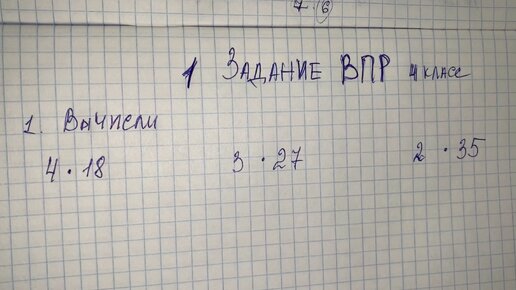 7. 6
1 ЗАДАНИЕ ВПР 4 КЛАСС
1. Вычисли
4 · 18 3 · 27 2 · 35